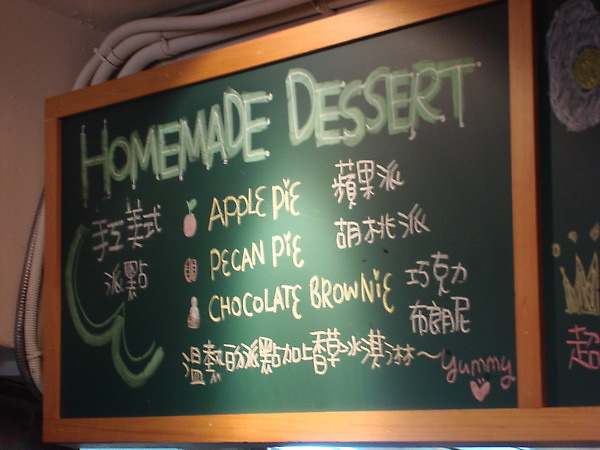 HOMEMADE DESSERT
手工美式
派點
APPLE PIE 蘋果派
PECAN PIE 胡桃派
CHOCOLATE BROWNIE 巧克力
布朗尼
溫熱的派點加上香草冰淇淋~yummy
超